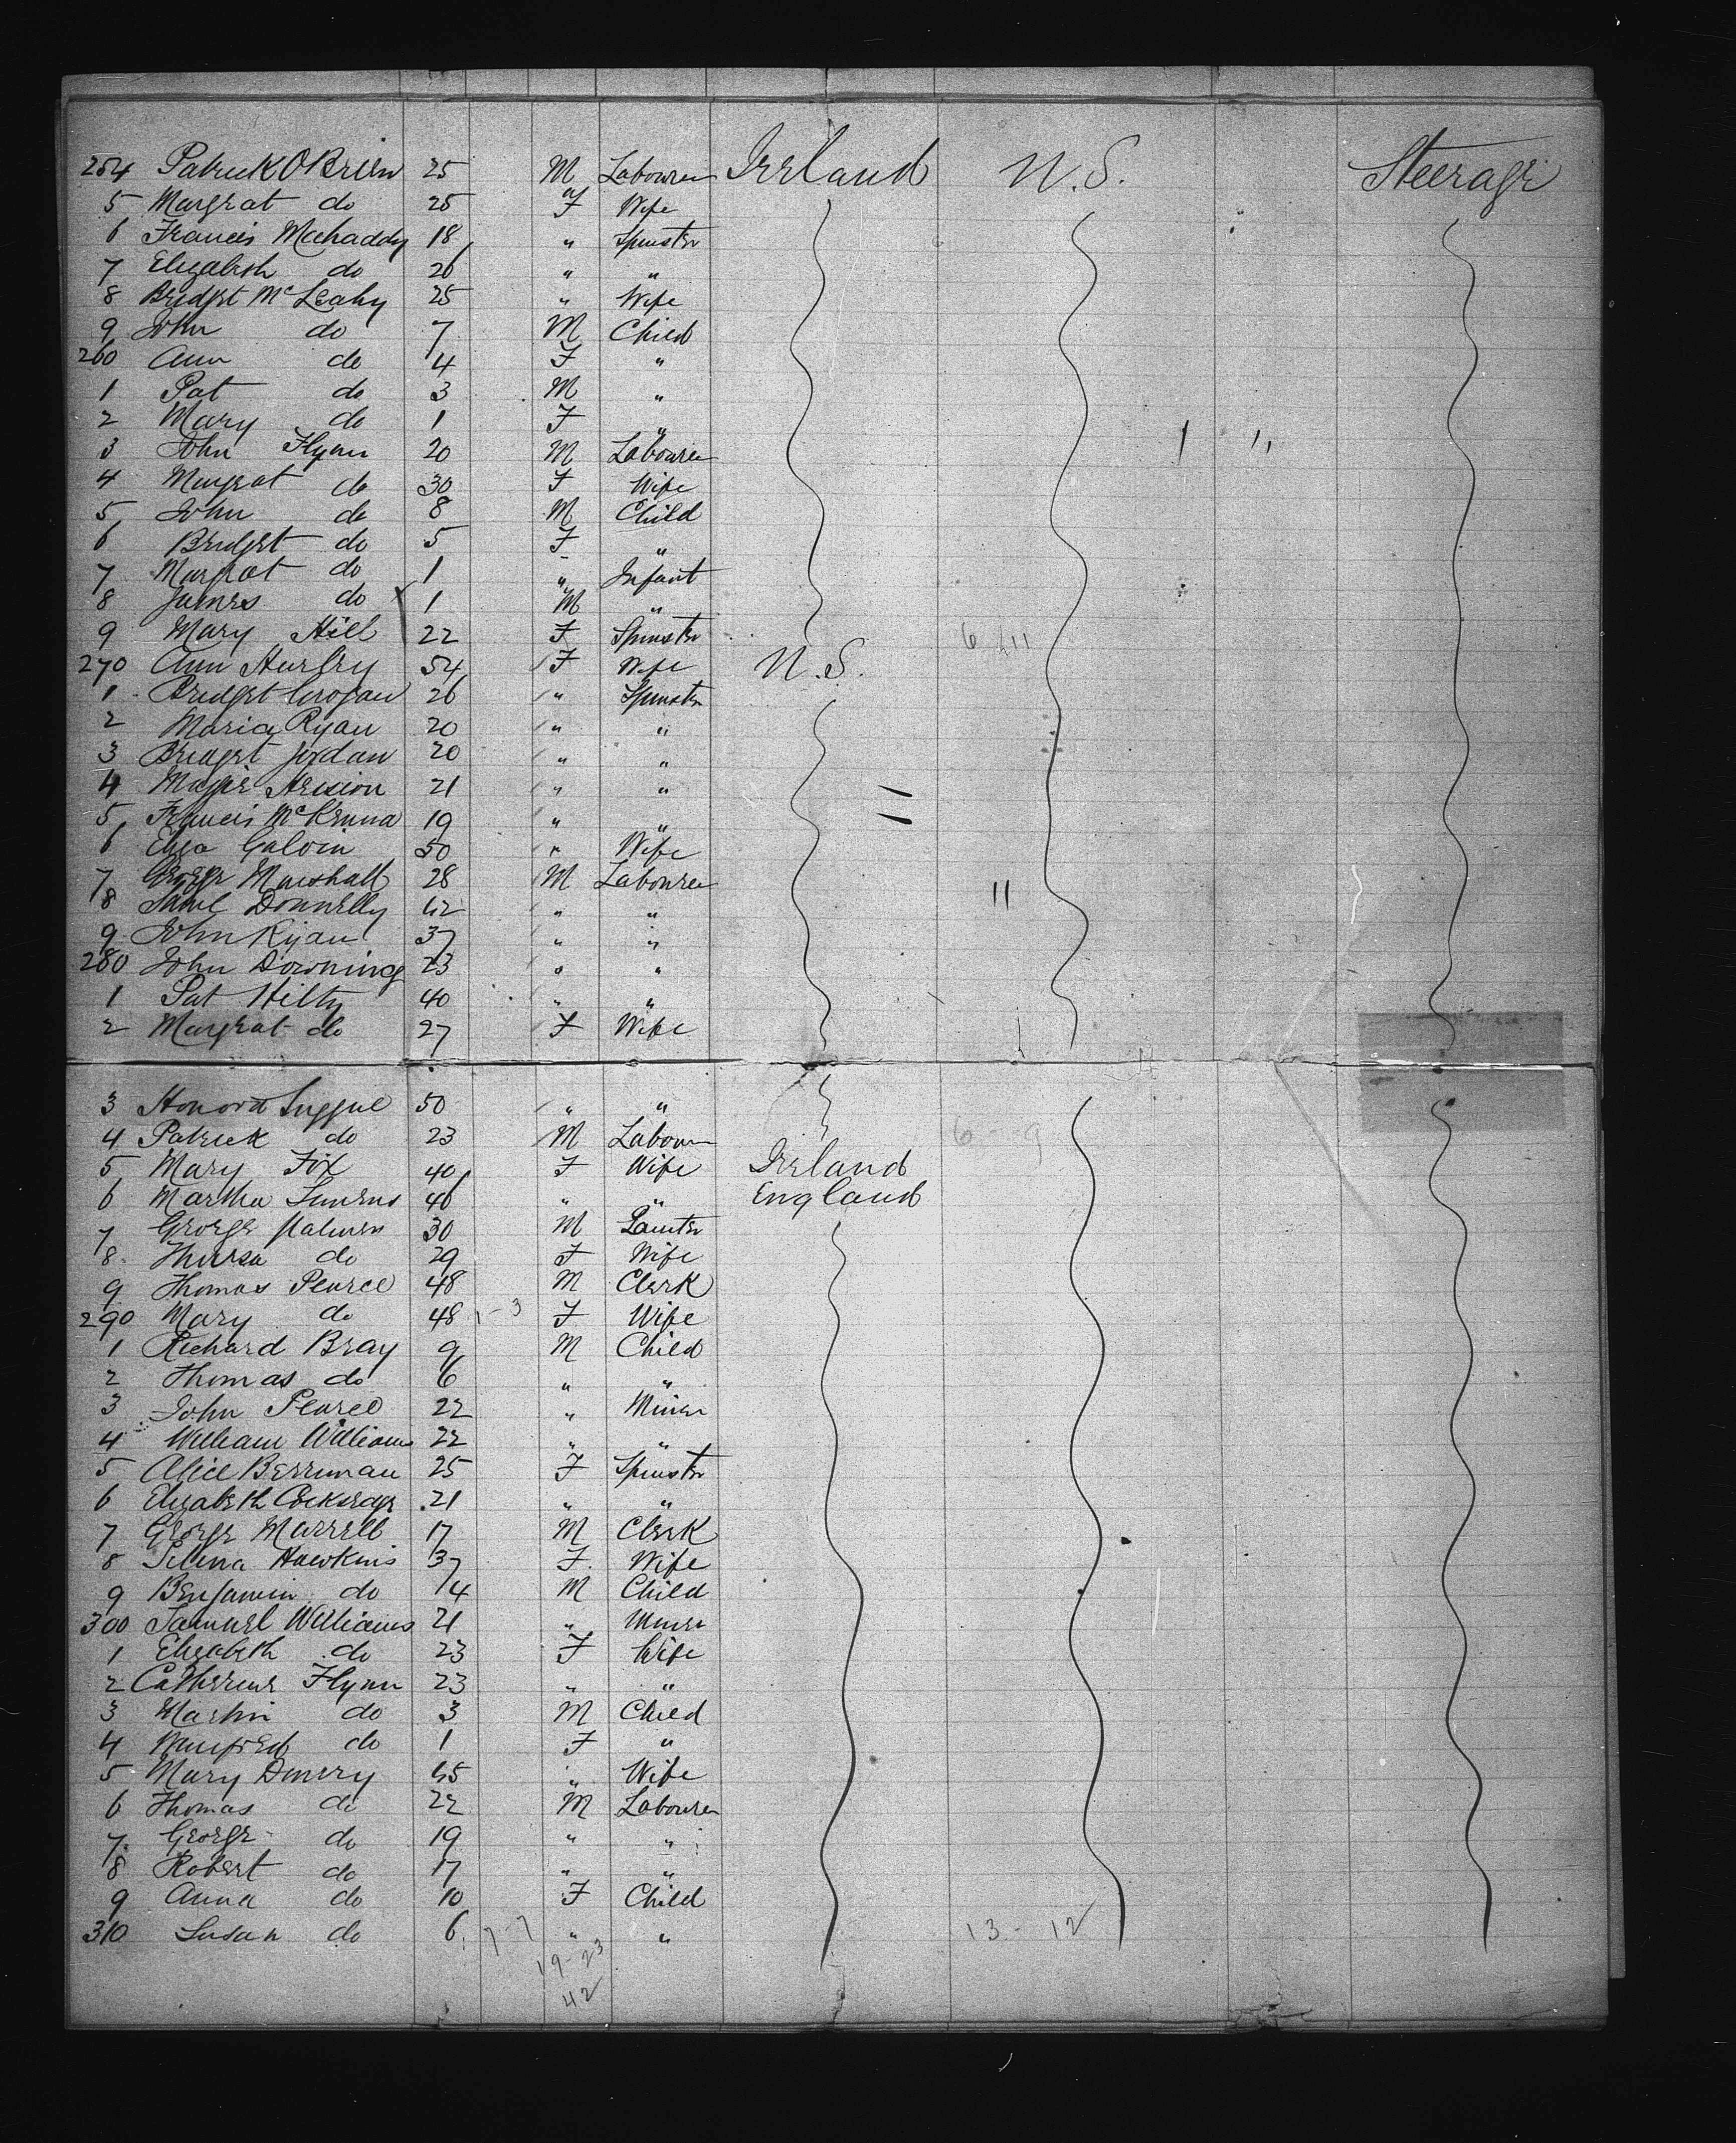 254 Patrick O Brien 25 M Labourer Ireland N.S. Steerage
5 Margrat do 25 F Wife
6 Francis Mchaddy 18 " Spinstr
7 Elizabeth do 26 " "
8 Bridget McLeahy 25 " Wife
9 John do 7 M Child
260 Ann do 4 F "
1 Pat do 3 M "
2 Mary do 1 F "
3 John Flynn 20 M Labourer
4 Margrat do 30 F Wife
5 John do 8 M Child
6 Bridget do 5 F "
7 Margrat do 1 " Infant
8 James do 1 M "
9 Mary Hill 22 F Spinstr 6 11
270 Ann 54 F Wife N.S.
1 Bridget Grogan 26 " Spinstr
2 Maria Ryan 20 " "
3 Bridget Jordan 20 " "
4 Magie 21 " "
5 Francis McKenna 19 " "
6 Eliza Galvin 50 " Wife
7 George Marshall 28 M Labourer
8 Saml Donnelly 42 " "
9 John Ryan 37 " "
280 John Downing 23 " "
1 Pat Hilty 40 " "
2 Margrat do 27 F Wife
3 Honora 50 " "
4 Patrick do 23 M Labourer 6 - 9
5 Mary Fox 40 F Wife Ireland
6 Martha 46 " " England
7 George 30 M Painter
8 Thirza do 29 F Wife
9 Thomas Pearce 48 M Clerk
290 Mary do 48 1-3 F Wife
1 Richard Bray 9 M Child
2 Thomas do 6 " "
3 John Pearce 22 " Miner
4 William Williams 22 " "
5 Alice Berriman 25 F Spinstr
6 Elizabeth 21 " "
7 George Marrell 17 M Clerk
8 Selina Hawkins 37 F Wife
9 Benjamin do 14 M Child
300 Samuel Williams 21 " Miner
1 Elizabeth do 23 F Wife
2 Catherine Flynn 23 " "
3 Martin do 3 M Child
4 Winifred do 1 F "
5 Mary 45 " Wife
6 Thomas do 22 M Labourer
7 George do 19 " "
8 Robert do 17 " "
9 Anna do 10 F Child
310 Susan do 6 7-7 " " 13 - 12
19-23
42